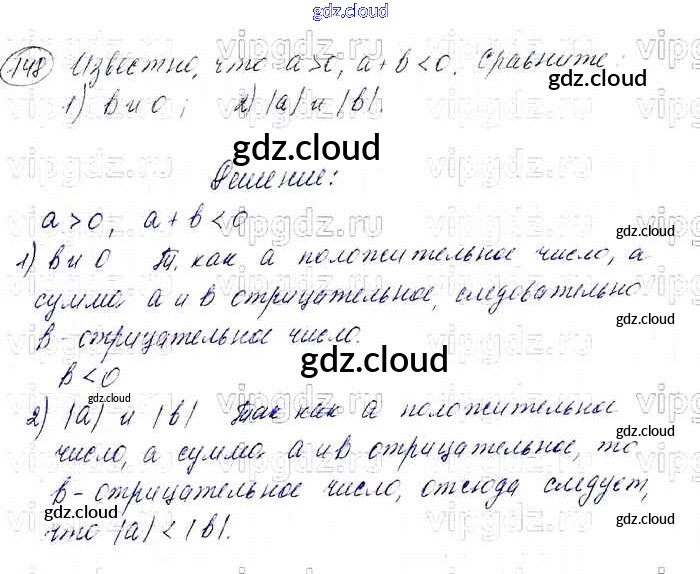 gdz.cloud
148 Известно, что a>0, a+b<0. Сравните:
1) b и 0; 2) |a| и |b|.
gdz.cloud
gdz.cloud
gdz.cloud
Решение:
a>0, a+b<0
gdz.cloud
1) b и 0 Т. как a положительное число, а
сумма a и b отрицательное, следовательно
gdz.cloud
b - отрицательное число.
gdz.cloud
b<0
gdz.cloud
2) |a| и |b| Так как a положительное
число, а сумма a и b отрицательное, то
gdz.cloud
b - отрицательное число, отсюда следует,
что |a|<|b|.
gdz.cloud